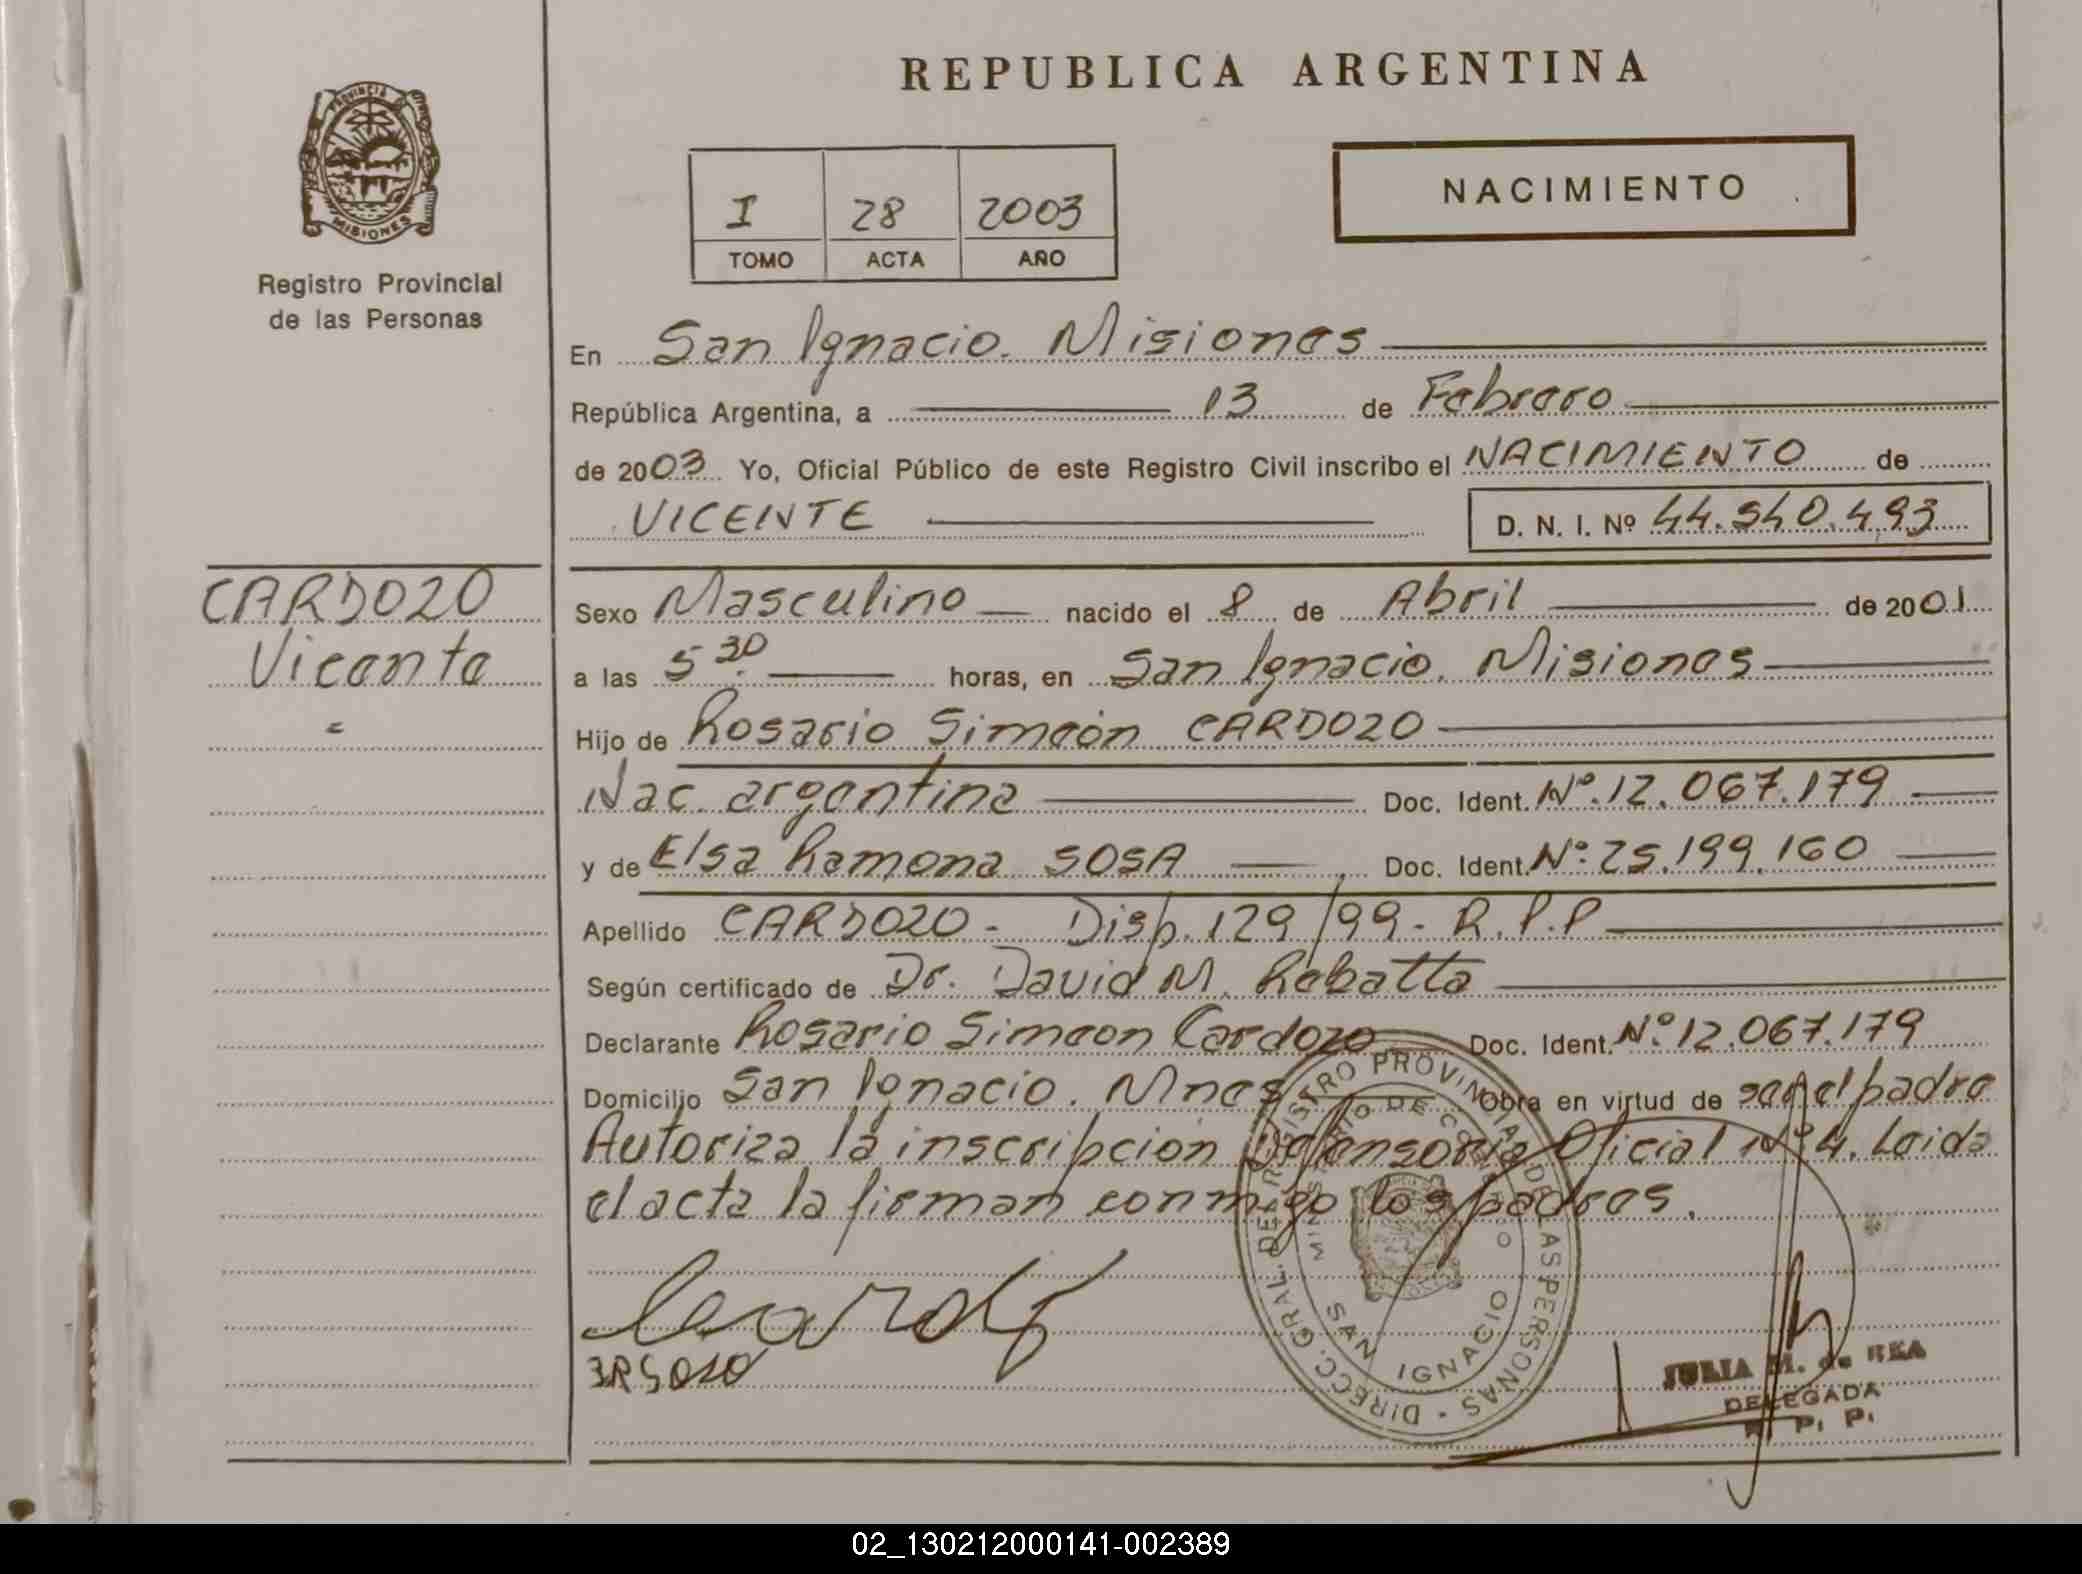 REPUBLICA ARGENTINA
PROVINCIA DE
MISIONES
Registro Provincial
de las Personas
I 28 2003
TOMO ACTA AÑO
NACIMIENTO
En San Ignacio. Misiones
República Argentina, a 13 de Febrero
de 2003 Yo, Oficial Público de este Registro Civil inscribo el NACIMIENTO de
VICENTE D. N. I. Nº 44.540.493
CARDOZO
Vicente
Sexo Masculino nacido el 8 de Abril de 2001
a las 5 30 horas, en San Ignacio. Misiones
Hijo de Rosario Simeón CARDOZO
Nac. argentina Doc. Ident. Nº.12.067.179
y de Elsa Ramona SOSA Doc. Ident. Nº:25.199.160
Apellido CARDOZO - Disp. 129/99 - R.P.P
Según certificado de Dr. David M. Rebatta
Declarante Rosario Simeon Cardozo Doc. Ident. Nº.12.067.179
Domicilio San Ignacio. Mnes Obra en virtud de ser el padre
Autoriza la inscripción Defensoria Oficial Nº 4. Leida
el acta la firman conmigo los padres.
DIRECC. GRAL. DEL REGISTRO PROVINCIAL DE LAS PERSONAS
MINISTERIO DE GOBIERNO
SAN IGNACIO
JULIA M. de REA
DELEGADA
R. P. P.
02_130212000141-002389